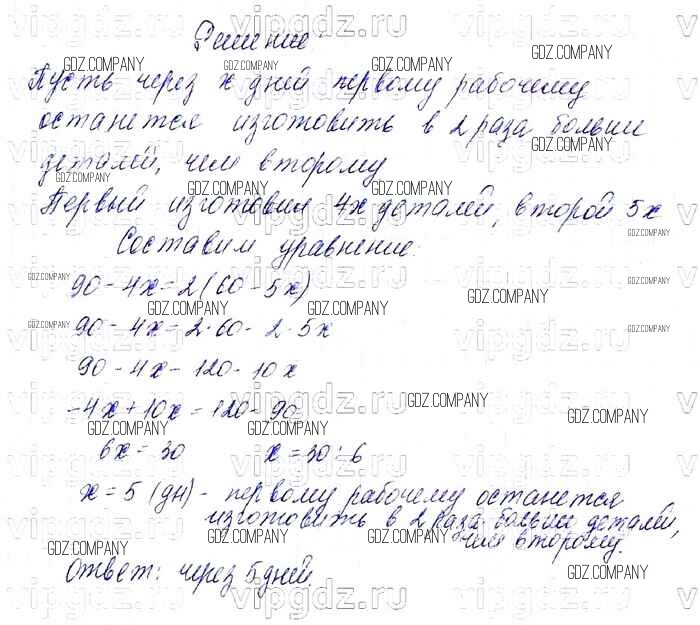 Решение:
Пусть через x дней первому рабочему
останется изготовить в 2 раза больше
деталей, чем второму
Первый изготовил 4x деталей, второй 5x
Составим уравнение:
90 - 4x = 2(60 - 5x)
90 - 4x = 2·60 - 2·5x
90 - 4x = 120 - 10x
-4x + 10x = 120 - 90
6x = 30 x = 30 : 6
x = 5 (дн) - первому рабочему останется
изготовить в 2 раза больше деталей,
чем второму.
Ответ: через 5 дней.
GDZ.COMPANY
vipgdz.ru